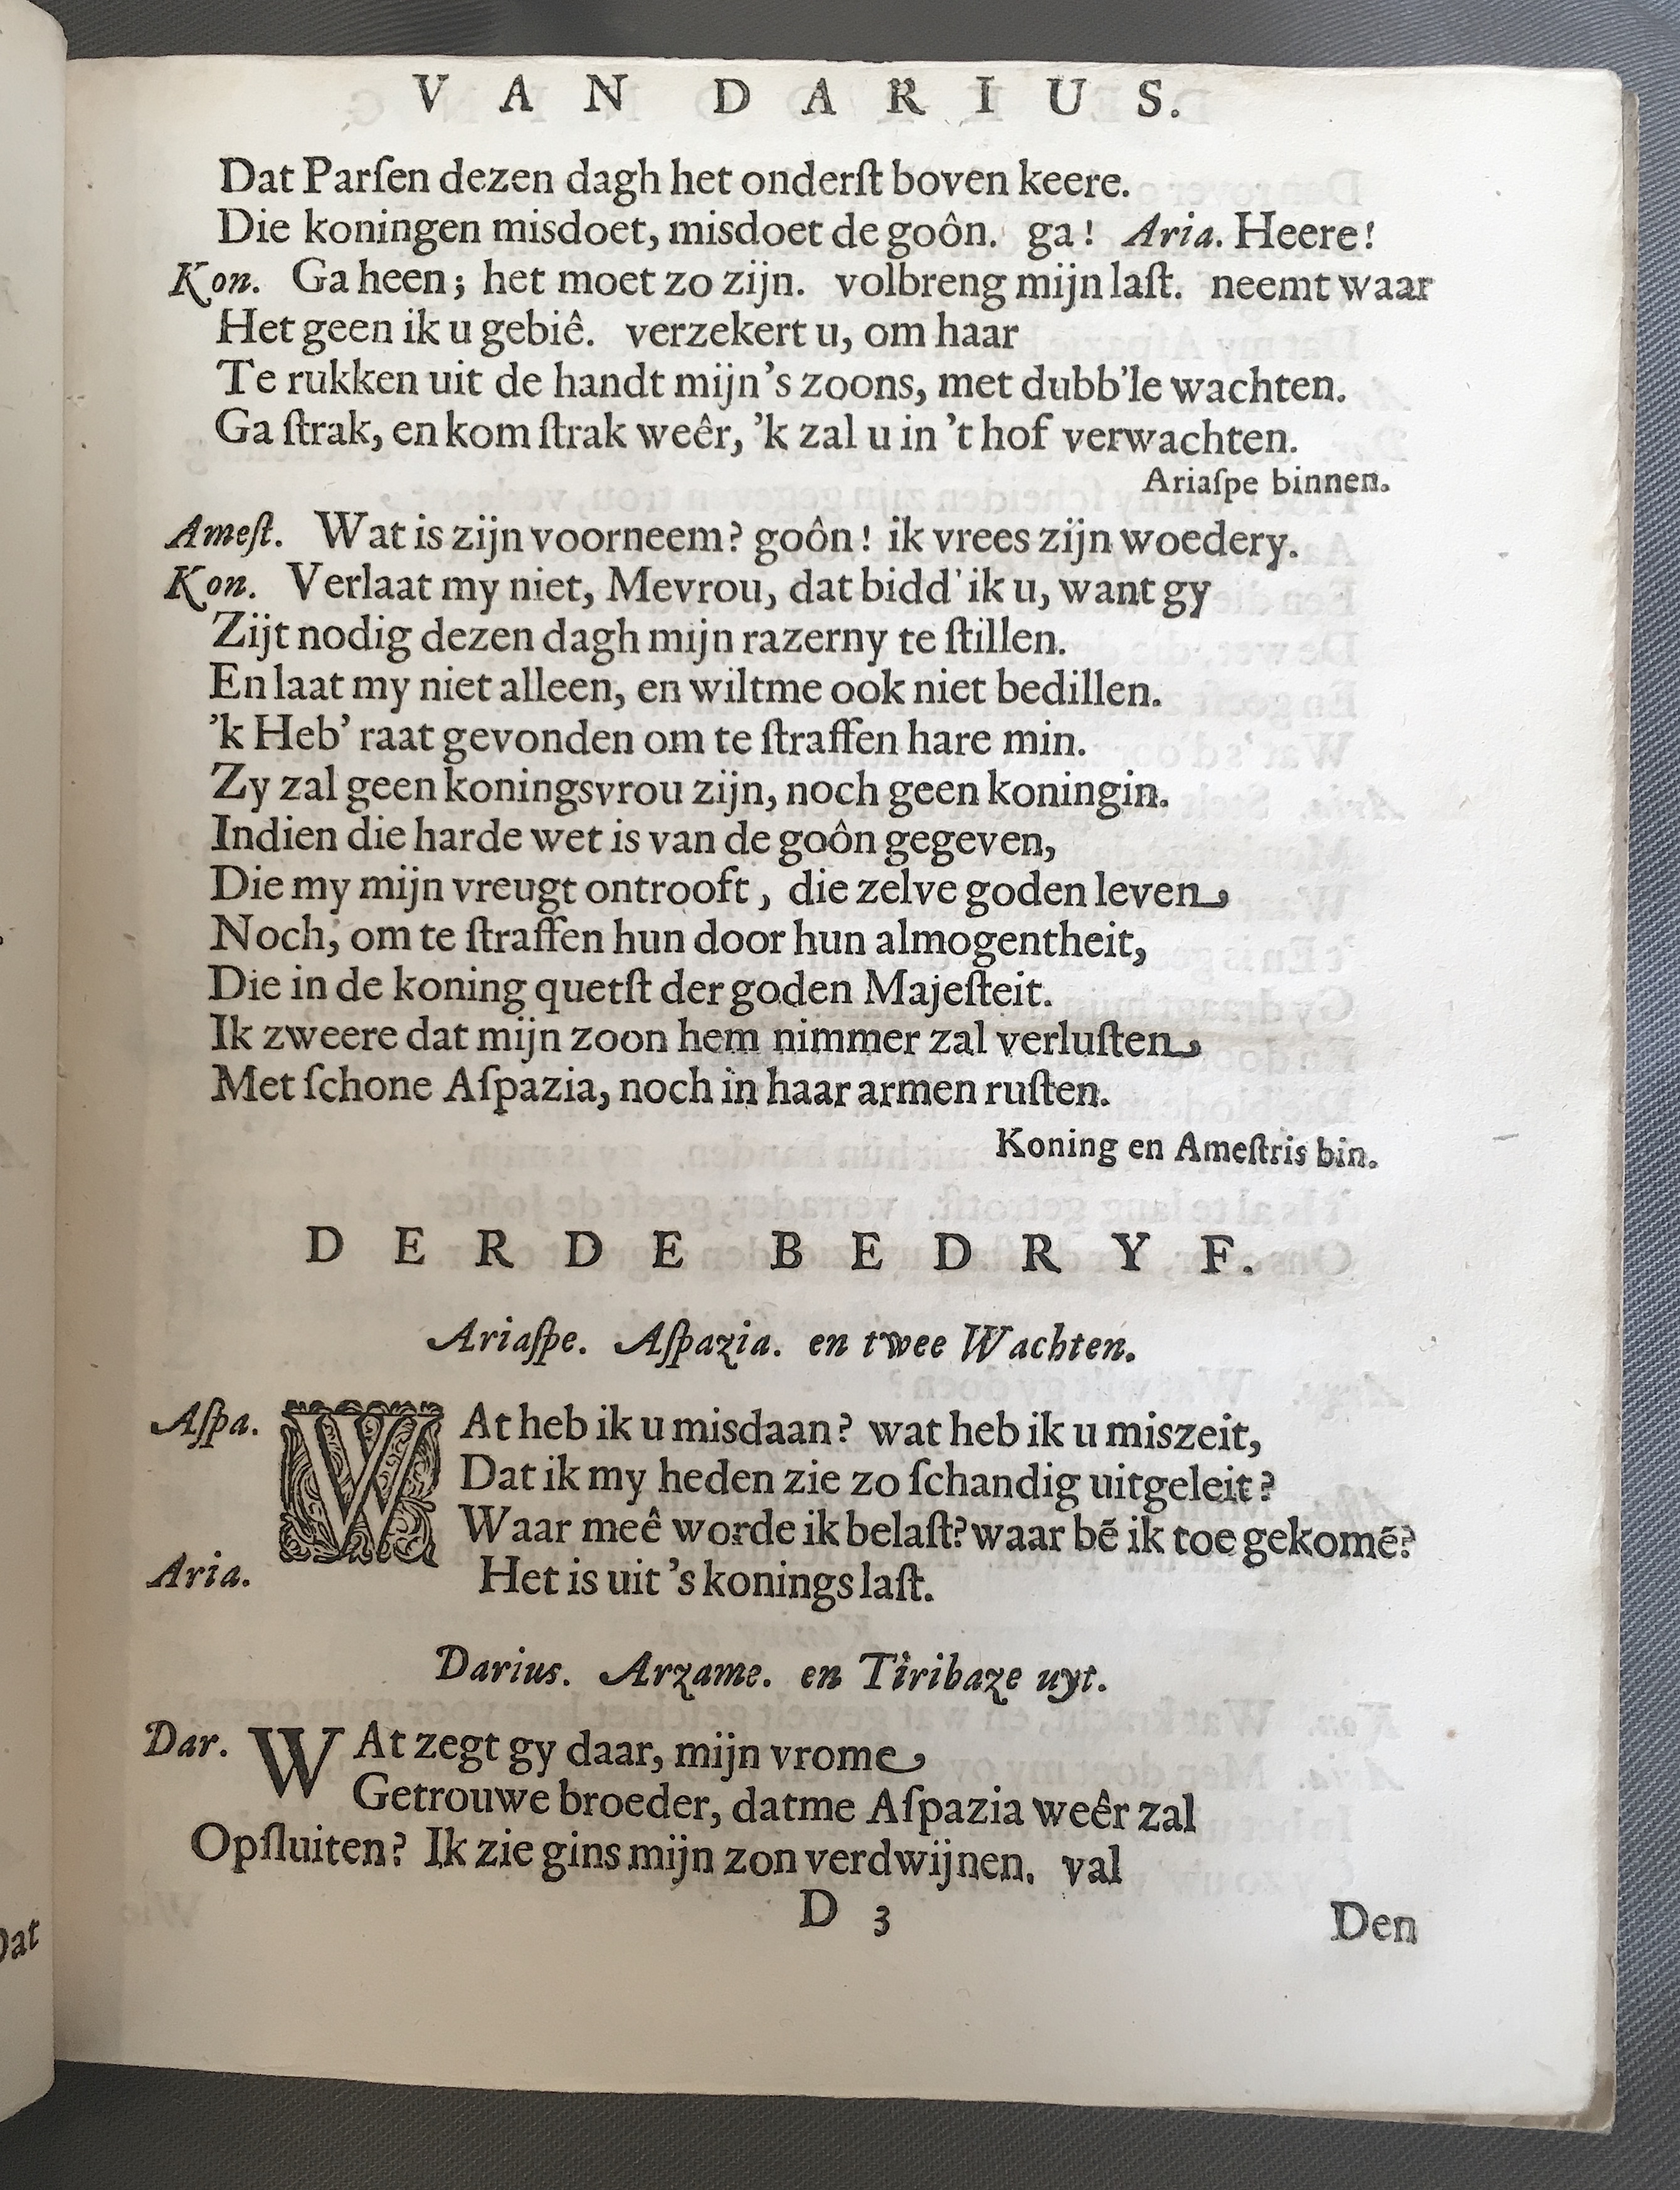 VAN DARIUS.
Dat Parſen dezen dagh het onderſt boven keere.
Die koningen misdoet, misdoet de goôn. ga! Aria. Heere!
Kon. Ga heen; het moet zo zijn. volbreng mijn laſt. neemt waar
Het geen ik u gebiê. verzekert u, om haar
Te rukken uit de handt mijn's zoons, met dubb'le wachten.
Ga ſtrak, en kom ſtrak weêr, 'k zal u in 't hof verwachten.
Ariaſpe binnen.
Ameſt. Wat is zijn voorneem? goôn! ik vrees zijn woedery.
Kon. Verlaat my niet, Mevrou, dat bidd' ik u, want gy
Zijt nodig dezen dagh mijn razerny te ſtillen.
En laat my niet alleen, en wiltme ook niet bedillen.
'k Heb' raat gevonden om te ſtraffen hare min.
Zy zal geen koningsvrou zijn, noch geen koningin.
Indien die harde wet is van de goôn gegeven,
Die my mijn vreugt ontrooft, die zelve goden leven
Noch, om te ſtraffen hun door hun almogentheit,
Die in de koning quetſt der goden Majeſteit.
Ik zweere dat mijn zoon hem nimmer zal verluſten
Met ſchone Aſpazia, noch in haar armen ruſten.
Koning en Ameſtris bin.
DERDE BEDRYF.
Ariaſpe. Aſpazia. en twee Wachten.
Aſpa. WAt heb ik u misdaan? wat heb ik u miszeit,
Dat ik my heden zie zo ſchandig uitgeleit?
Waar meê worde ik belaſt? waar bē ik toe gekomē?
Aria. Het is uit 's konings laſt.
Darius. Arzame. en Tiribaze uyt.
Dar. WAt zegt gy daar, mijn vrome
Getrouwe broeder, datme Aſpazia weêr zal
Opſluiten? Ik zie gins mijn zon verdwijnen. val
D 3
Den
Dat